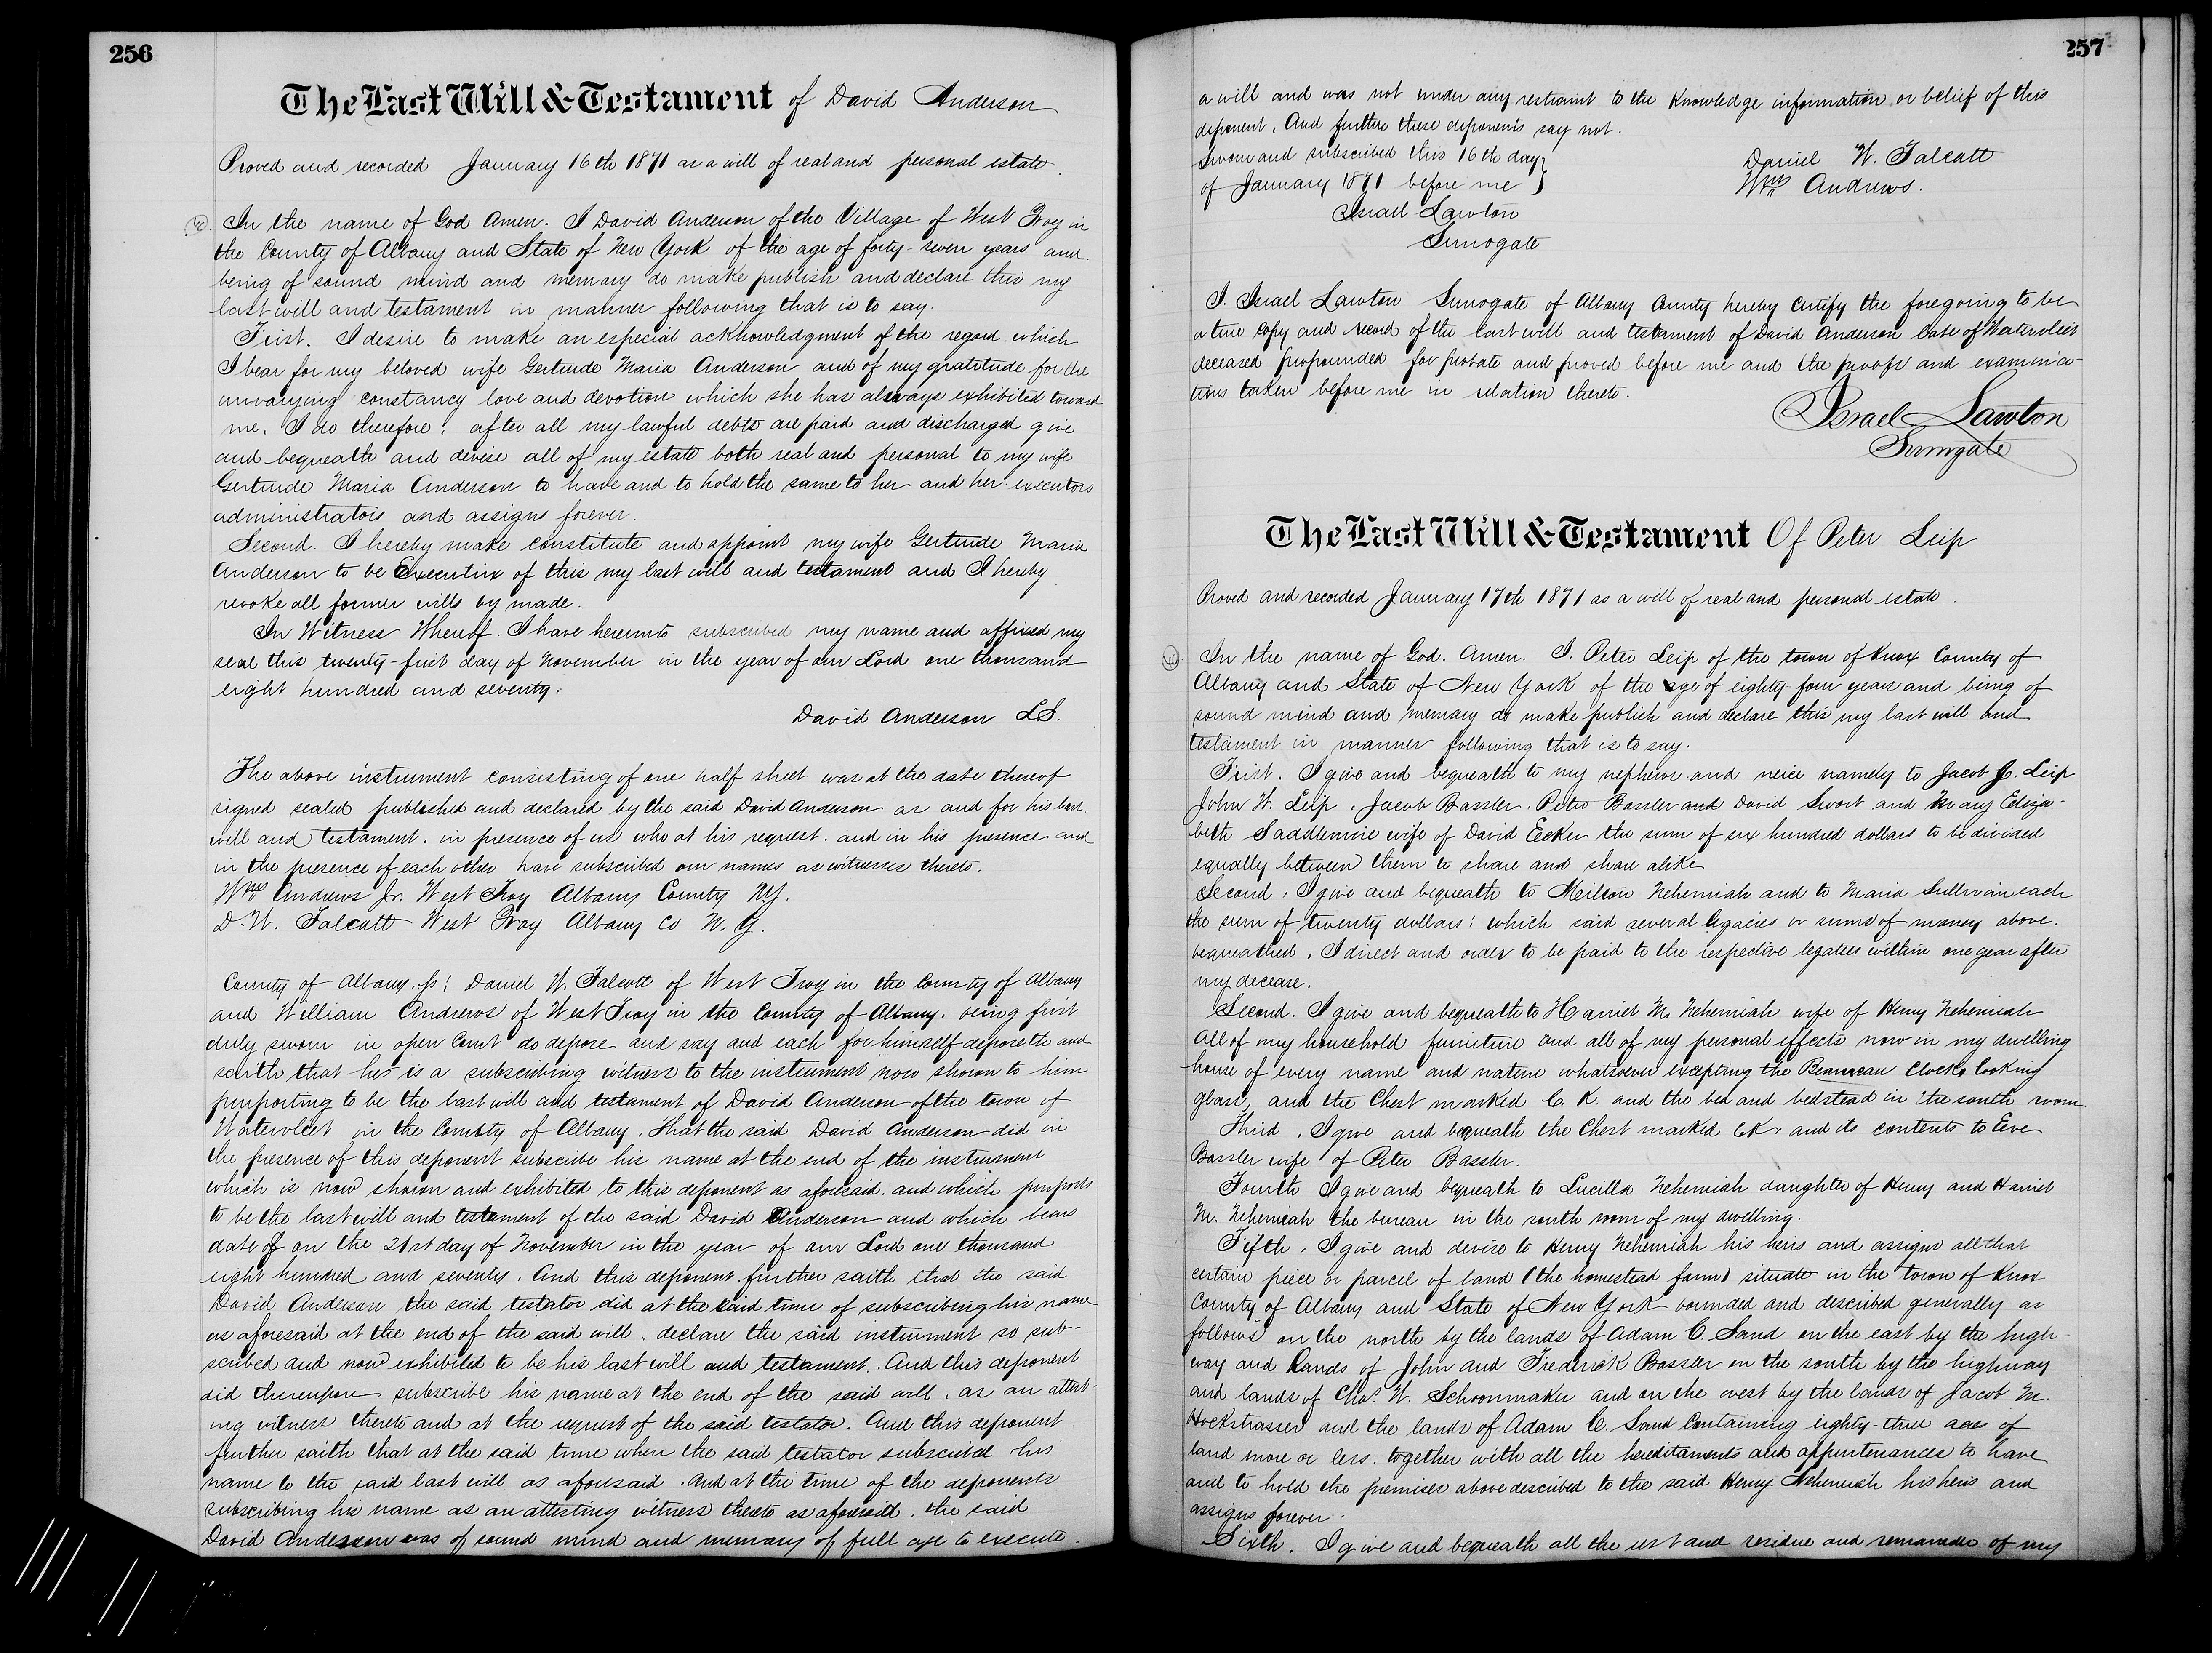 256
The Last Will & Testament of David Anderson
Proved and recorded January 16th 1871 as a will of real and personal estate.
In the name of God Amen. I David Anderson of the Village of West Troy in
the County of Albany and State of New York of the age of forty-seven years and
being of sound mind and memory do make publish and declare this my
last will and testament in manner following that is to say.
First. I desire to make an especial acknowledgment of the regard which
I bear for my beloved wife Gertrude Maria Anderson and of my gratitude for the
unvarying constancy love and devotion which she has always exhibited toward
me. I do therefore: after all my lawful debts are paid and discharged give
and bequeath and devise all of my estate both real and personal to my wife
Gertrude Maria Anderson to have and to hold the same to her and her executors
administrators and assigns forever.
Second. I hereby make constitute and appoint my wife Gertrude Maria
Anderson to be Executrix of this my last will and testament and I hereby
revoke all former wills by made.
In Witness Whereof. I have hereunto subscribed my name and affixed my
seal this twenty-first day of November in the year of our Lord one thousand
eight hundred and seventy.
David Anderson L.S.
The above instrument consisting of one half sheet was at the date thereof
signed sealed published and declared by the said David Anderson as and for his last
will and testament. in presence of us who at his request. and in his presence and
in the presence of each other have subscribed our names as witnesses thereto.
Wm Andrews Jr. West Troy Albany County N.Y.
D. W. Talcott West Troy Albany Co N. Y.
County of Albany. ss: Daniel W. Talcott of West Troy in the County of Albany
and William Andrews of West Troy in the County of Albany. being first
duly sworn in open Court do depose and say and each for himself deposeth and
saith that he is a subscribing witness to the instrument now shown to him
purporting to be the last will and testament of David Anderson of the town of
Watervliet in the County of Albany. That the said David Anderson did in
the presence of this deponent subscribe his name at the end of the instrument
which is now shown and exhibited to this deponent as aforesaid. and which purports
to be the last will and testament of the said David Anderson and which bears
date of on the 21st day of November in the year of our Lord one thousand
eight hundred and seventy. And this deponent further saith that the said
David Anderson the said testator did at the said time of subscribing his name
as aforesaid at the end of the said will. declare the said instrument so sub-
scribed and now exhibited to be his last will and testament. And this deponent
did thereupon subscribe his name at the end of the said will. as an attest-
ing witness thereto and at the request of the said testator. And this deponent
further saith that at the said time when the said testator subscribed his
name to the said last will as aforesaid. And at the time of the deponents
subscribing his name as an attesting witness thereto as aforesaid. the said
David Anderson was of sound mind and memory of full age to execute
257
a will and was not under any restraint to the knowledge information or belief of this
deponent. And further these deponents say not.
Sworn and subscribed this 16th day
of January 1871 before me
Israel Lawton
Surrogate
Daniel W. Talcott
Wm Andrews.
I. Israel Lawton Surrogate of Albany County hereby certify the foregoing to be
a true copy and record of the last will and testament of David Anderson late of Watervliet
deceased propounded for probate and proved before me and the proofs and examina-
tions taken before me in relation thereto.
Israel Lawton
Surrogate
The Last Will & Testament Of Peter Leip
Proved and recorded January 17th 1871 as a will of real and personal estate.
In the name of God. Amen. I. Peter Leip of the town of Knox County of
Albany and State of New York of the age of eighty-four years and being of
sound mind and memory do make publish and declare this my last will and
testament in manner following that is to say.
First. I give and bequeath to my nephews and neice namely to Jacob J. Leip
John W. Leip. Jacob Bassler. Peter Bassler and David Swart and Mary Eliza-
beth Saddlemire wife of David Ecker the sum of six hundred dollars to be divided
equally between them to share and share alike
Second. I give and bequeath to Milton Nehemiah and to Maria Sullivan each
the sum of twenty dollars: which said several legacies or sums of money above.
bequeathed. I direct and order to be paid to the respective legatees within one year after
my decease.
Second. I give and bequeath to Harriet M. Nehemiah wife of Henry Nehemiah
all of my household furniture and all of my personal effects now in my dwelling
house of every name and nature whatsoever excepting the Beaureau clock looking
glass, and the Chest marked C. K. and the bed and bedstead in the south room.
Third. I give and bequeath the Chest marked C.K. and its contents to Eve
Bassler wife of Peter Bassler.
Fourth I give and bequeath to Lucilla Nehemiah daughter of Henry and Harriet
M. Nehemiah the bureau in the south room of my dwelling.
Fifth. I give and devise to Henry Nehemiah his heirs and assigns all that
certain piece or parcel of land (the homestead farm) situate in the town of Knox
County of Albany and State of New York bounded and described generally as
follows on the north by the lands of Adam C. Sand on the east by the high-
way and lands of John and Frederick Bassler on the south by the highway
and lands of Chas. W. Schoonmaker and on the west by the lands of Jacob M.
Hockstrasser and the lands of Adam C. Sand containing eighty-three acres of
land more or less. together with all the hereditaments and appurtenances to have
and to hold the premises above described to the said Henry Nehemiah his heirs and
assigns forever.
Sixth. I give and bequeath all the rest and residue and remainder of my